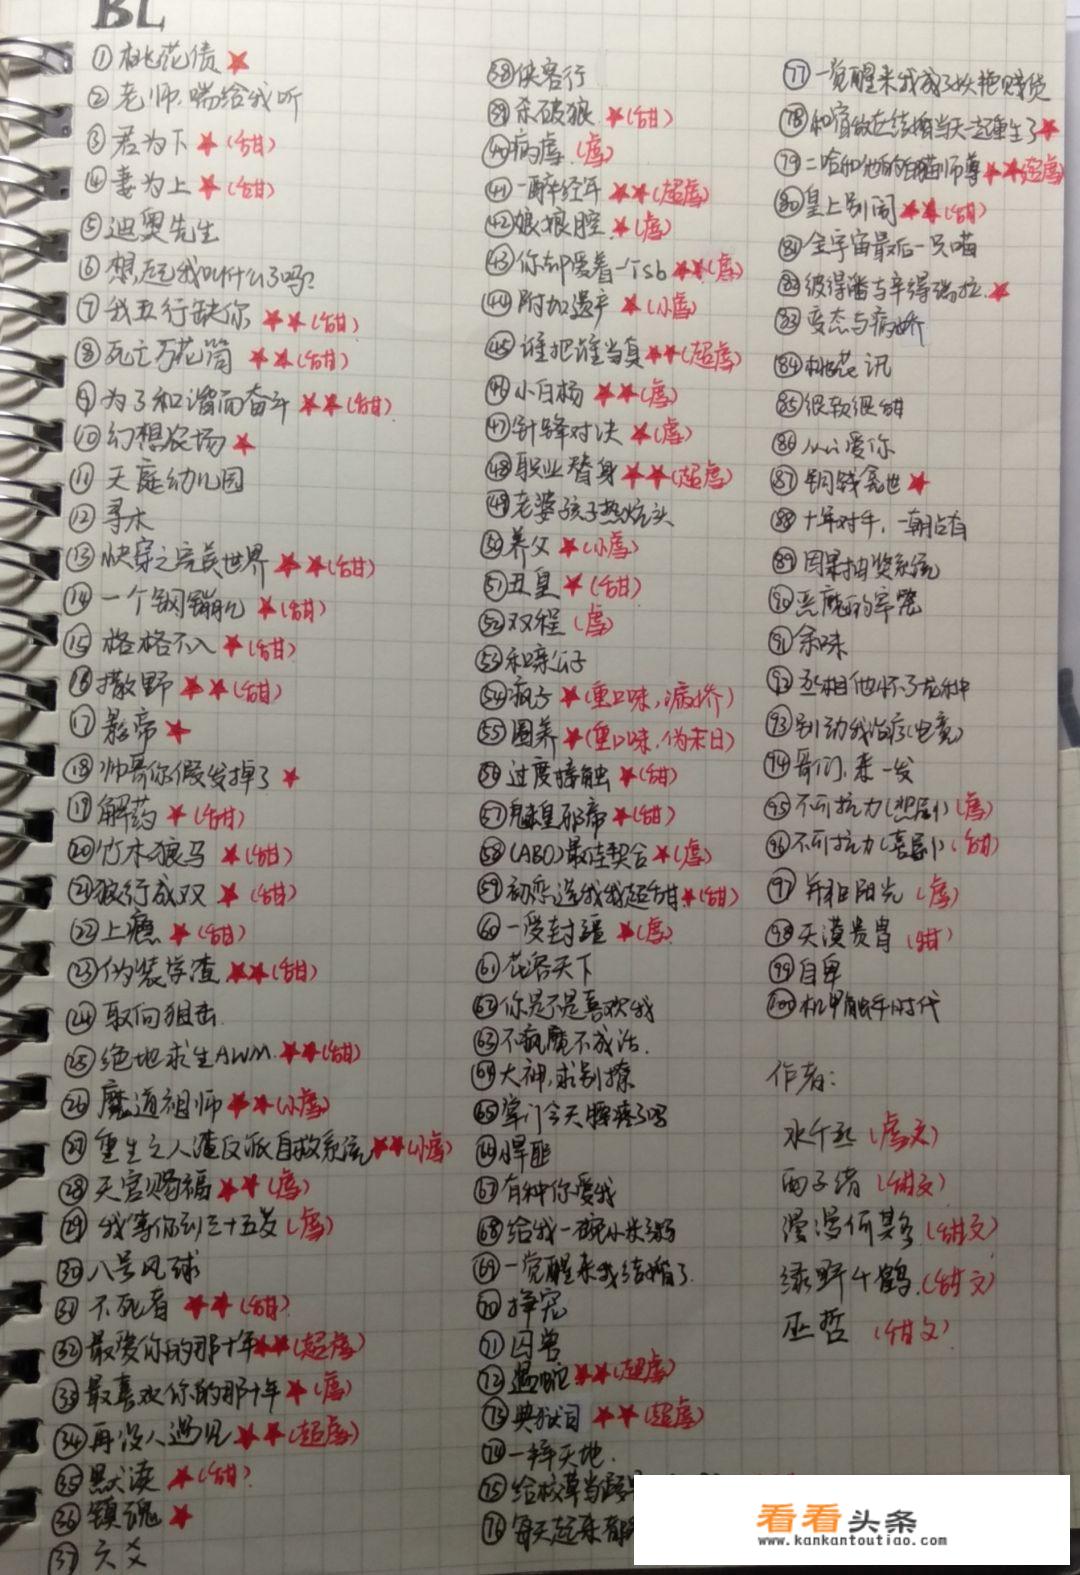 BL
①桃花债★
②老师,喘给我听
③君为下★(甜)
④妻为上★(甜)
⑤迪奥先生
⑥想起我叫什么了吗?
⑦我五行缺你★★(甜)
⑧死亡万花筒★★(甜)
⑨为了和谐而奋斗★★(甜)
⑩幻想农场★
⑪天庭幼儿园
⑫寻木
⑬快穿之完美世界★★(甜)
⑭一个钢镚儿★(甜)
⑮格格不入★(甜)
⑯撒野★★(甜)
⑰影帝★
⑱帅哥你假发掉了★
⑲解药★(甜)
⑳竹木狼马★(甜)
㉑狼行成双★(甜)
㉒上瘾★(甜)
㉓伪装学渣★★(甜)
㉔取向狙击
㉕绝地求生AWM.★★(甜)
㉖魔道祖师★★(小虐)
㉗重生之人渣反派自救系统★★(小虐)
㉘天官赐福★★(虐)
㉙我等你到三十五岁(虐)
㉚八号风球
㉛不死者★★(甜)
㉜最爱你的那十年★★(超虐)
㉝最喜欢你的那十年★(虐)
㉞再没人遇见★★(超虐)
㉟默读★(甜?
㊱镇魂★
㊲六爻
㊳侠客行
㊴杀破狼★(甜)
㊵病虐.(虐)
㊶一醉经年★★(超虐)
㊷娘娘腔★(虐)
㊸你却爱着一个sb★★(虐)
㊹附加遗产★(小虐)
㊺谁把谁当真★★(超虐)
㊻小白杨★★(虐)
㊼针锋对决★(虐)
㊽职业替身★★(超虐)
㊾老婆孩子热炕头
㊿养父★(小虐)
51丑皇★(甜)
52双程(虐)
53和亲公子
54疯子★(重口味,病娇)
55圈养★(重口味,伪末日)
56过度接触★(甜)
57魅皇邪帝★(甜)
58(ABO)最佳契合★(虐)
59初恋选我我超甜★(甜)
60一受封疆★(虐)
61花容天下
62你是不是喜欢我
63不疯魔不成活.
64大神,求别撩
65掌门今天腰疼了吗
66悍匪
67有种你爱我
68给我一碗小米粥
69一觉醒来我结婚了.
70择宠
71囚兽
72遇蛇★★(超虐)
73典狱司★★(超虐)
74一辩天地.
75给校草当
76每天起来都
77一觉醒来我成了妖艳贱货
78和宿敌在结婚当天一起重生了★
79二哈和他的白猫师尊★★(超虐)
80皇上别闹★★(甜)
81全宇宙最后一只喵
82彼得潘与辛得瑞拉.★
83变态与病娇
84桃花讯
85很软很甜
86从心爱你
87铜钱龛世★
88十年对手,一朝占有
89因果抽奖系统
90恶魔的牢笼
91余味
92丞相他怀了龙种
93别动我治疗(电竞)
94哥们,来一发
95不可抗力(悲剧)(虐)
96不可抗力(喜剧)(甜)
97并和阳光(虐)
98天漠贵胄(甜)
99自卑
100机甲触手时代
作者:
水千丞(虐文)
西子绪(甜文)
漫漫何其多(甜文)
绿野千鹤.(甜文)
巫哲(甜文)
看看头条
www.kankantoutiao.com